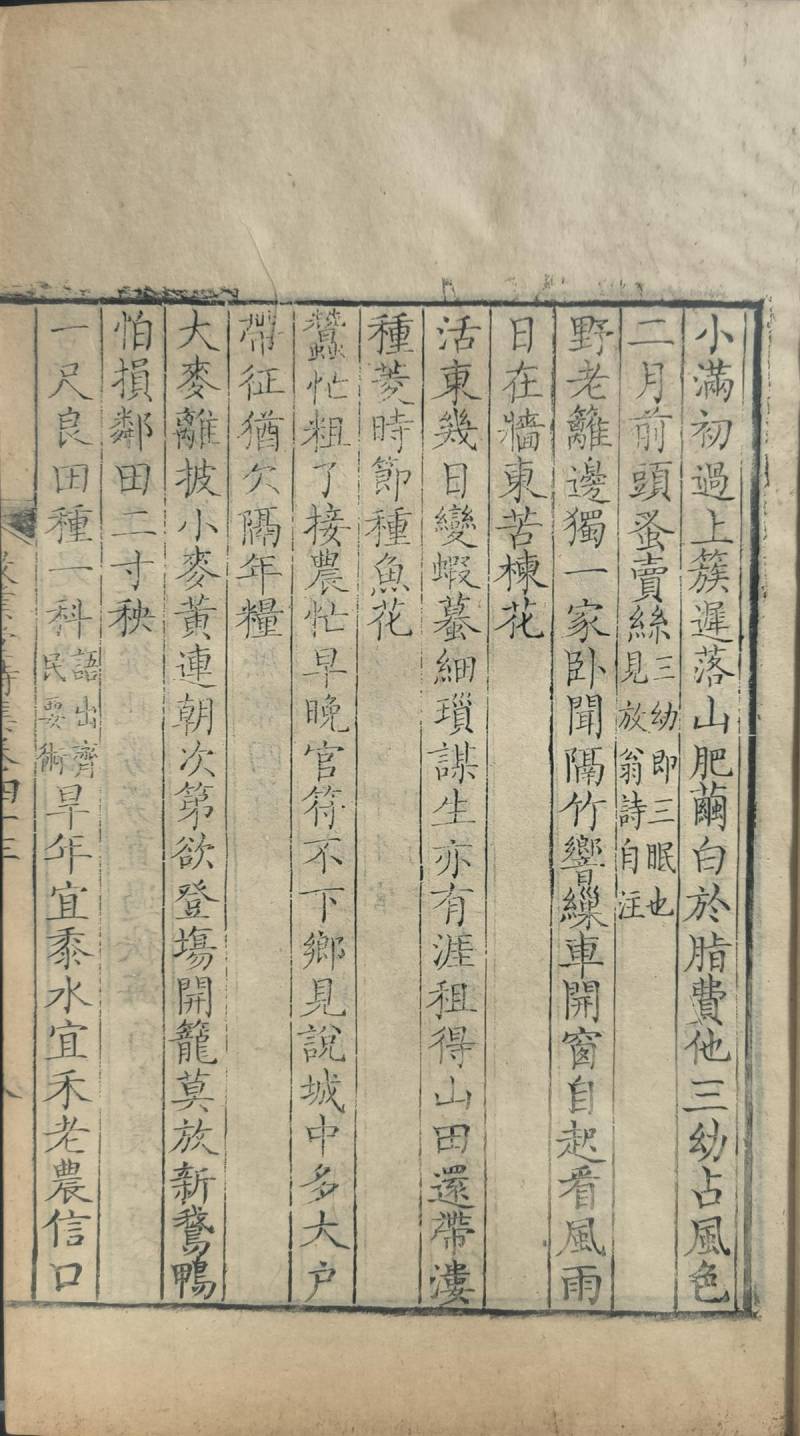 小滿初過上簇遲落山肥繭白於脂費他三幼占風色
二月前頭蚤賣絲三幼即三眠也見放翁詩自注
野老籬邊獨一家卧聞隔竹響繅車開窗自起看風雨
日在牆東苦楝花
活東幾日變蝦蟇細瑣謀生亦有涯租得山田還帶漊
種菱時節種魚花
蠶忙粗了接農忙早晚官符不下鄉見說城中多大戶
帶征猶欠隔年糧
大麥離披小麥黃連朝次第欲登塲開籠莫放新鵞鴨
怕損鄰田二寸秧
一尺良田種一科語出齊民要術旱年宜黍水宜禾老農信口